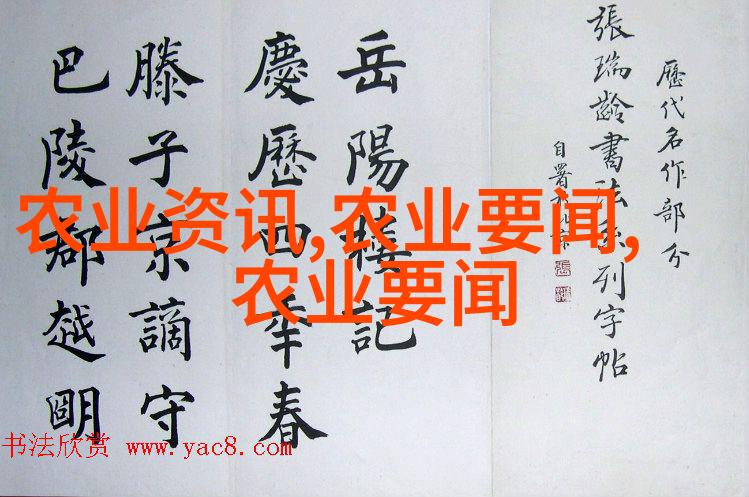 歷代名作部分
張瑞齡書法系列字帖
自署於北京
岳陽樓記
慶歷四年春
滕子京謫守
巴陵郡越明
农业资讯,农业要闻,
农业要闻
书法欣赏 www.yac8.com